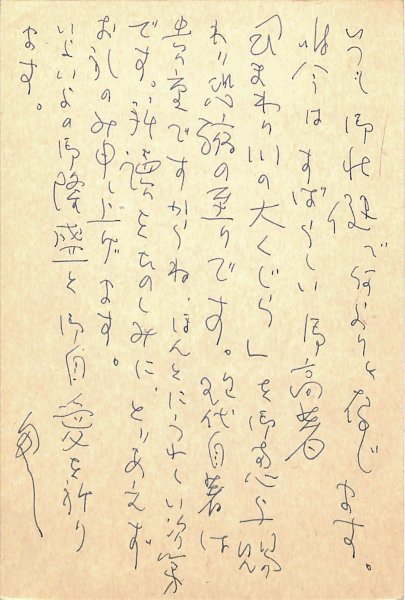 いつも御壮健で何よりと存じます。
昨今はすばらしい御高著
「ひまわり川の大くじら」を御恵与賜
わり恐縮の至りです。現代自著は
です。拝読をたのしみに、とりあえず
お礼のみ申し上げます。
いよいよの御隆盛と御自愛を祈り
ます。